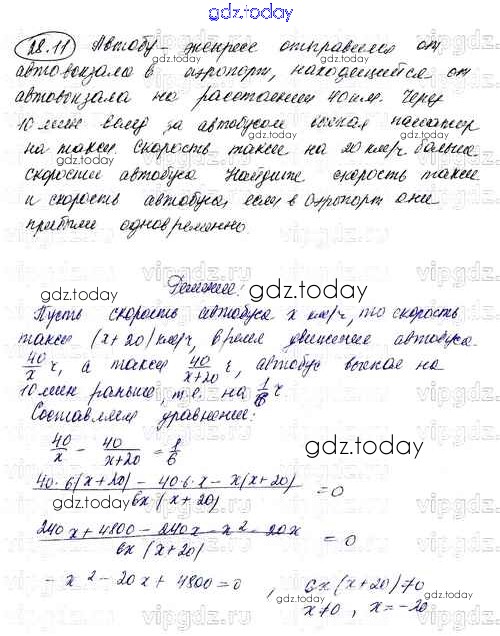 gdz.today
28.11 Автобус-экспресс отправился от
автовокзала в аэропорт, находящийся от
автовокзала на расстоянии 40 км. Через
10 мин вслед за автобусом выехал пассажир
на такси. Скорость такси на 20 км/ч больше
скорости автобуса. Найдите скорость такси
и скорость автобуса, если в аэропорт они
прибыли одновременно
Решение:
Пусть скорость автобуса x км/ч, то скорость
такси (x+20) км/ч, время движения автобуса
40/x ч, а такси 40/(x+20) ч, автобус выехал на
10 мин раньше, т.е. на 1/6 ч
Составляем уравнение:
40/x - 40/(x+20) = 1/6
(40·6(x+20) - 40·6·x - x(x+20))/(6x(x+20)) = 0
(240x + 4800 - 240x - x² - 20x)/(6x(x+20)) = 0
- x² - 20x + 4800 = 0 , 6x(x+20) ≠ 0
x ≠ 0, x = -20